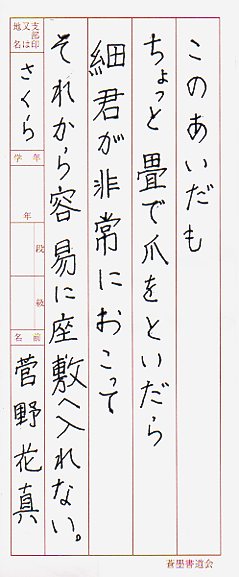 このあいだも
ちょっと畳で爪をといだら
細君が非常におこって
それから容易に座敷へ入れない。
支部印又は地名
さくら
学年
年
段
級
名前
菅野花真
蒼墨書道会